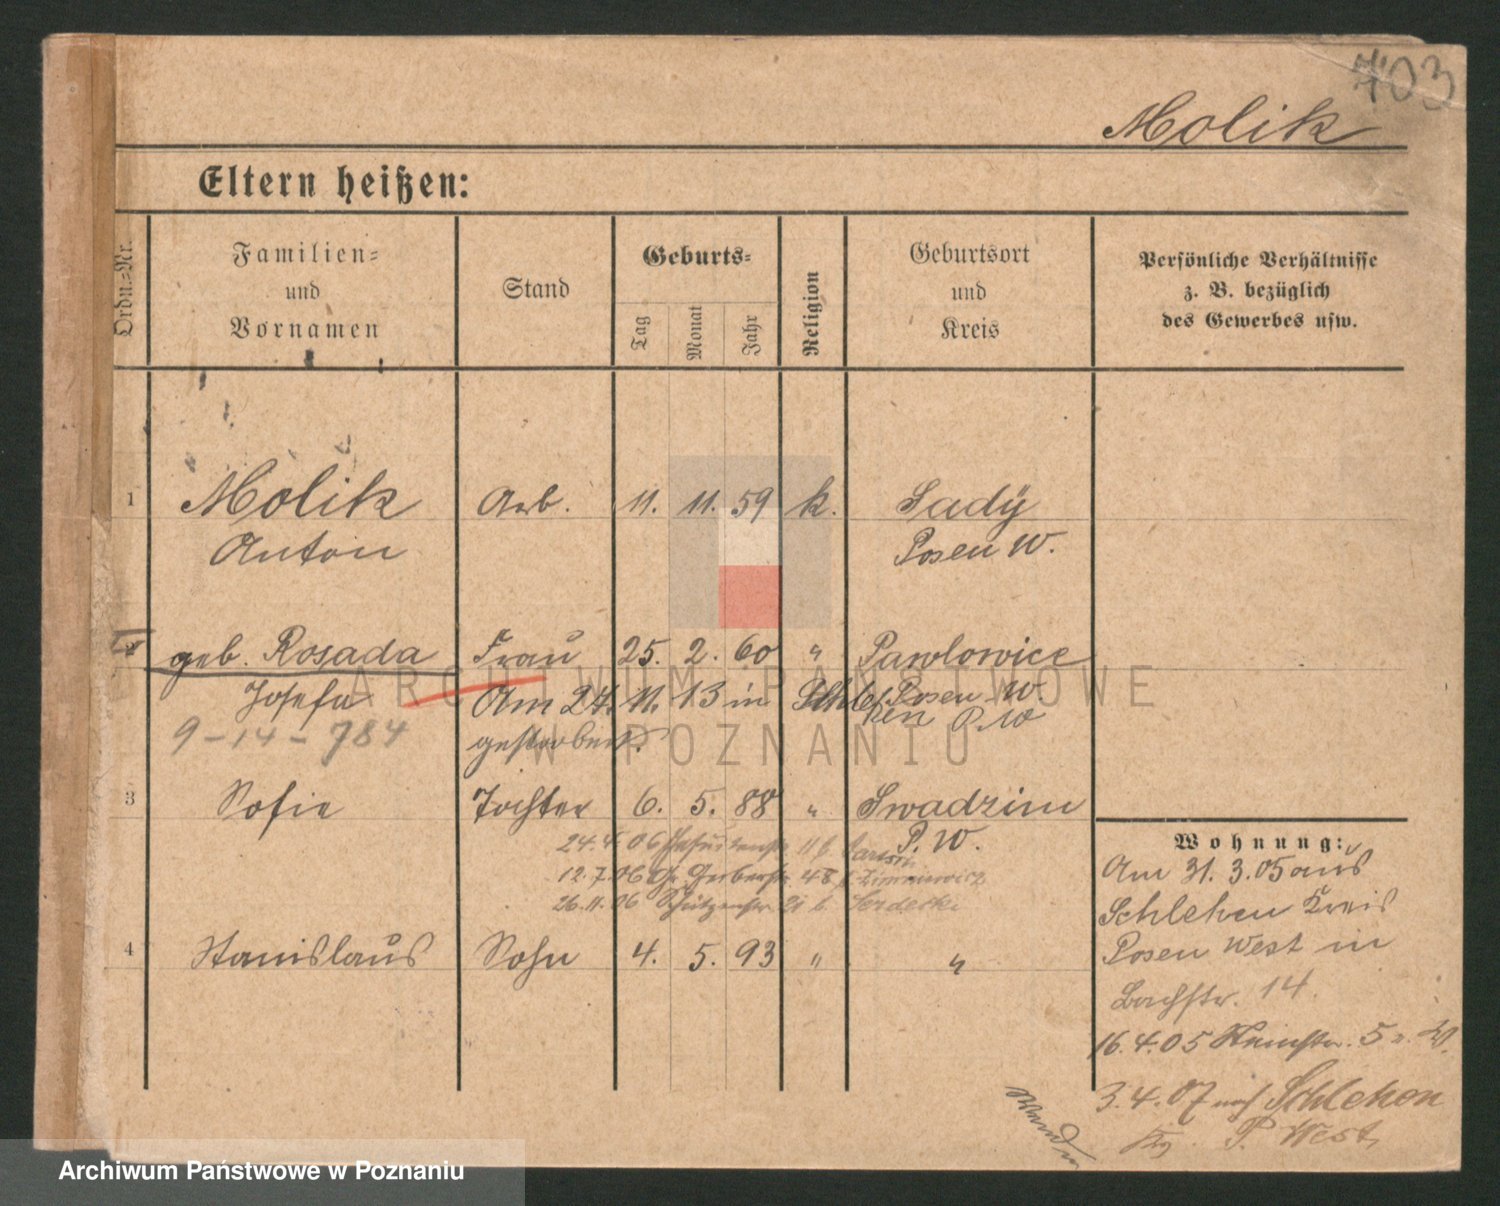 703
Molik
Eltern heißen:
Ordn.-Nr.
Familien-
und
Vornamen
Stand
Geburts-
Tag
Monat
Jahr
Religion
Geburtsort
und
Kreis
Persönliche Verhältnisse
z. B. bezüglich
des Gewerbes usw.
1 Molik Arb. 11. 11. 59 k. Sady
Anton Posen W.
2 geb. Rosada Frau 25. 2. 60 " Pawlowice
Josefa Posen W.
Am 24. 11. 13 in Schlehen P. W
9-14-784 gestorben.
3 Sofie Tochter 6. 5. 88 " Swadzim
P. W.
24.4.06 11 b.
12.7.06 Gr. Gerberstr. 48
26.11.06 Schützenstr. 21 b.
4 Stanislaus Sohn 4. 5. 93 " "
Wohnung:
Am 31. 3. 05 aus
Schlehen Kreis
Posen West in
Bachstr. 14.
16. 4. 05 5
3. 4. 07 nach Schlehen
P. West
ARCHIWUM PAŃSTWOWE
W POZNANIU
Archiwum Państwowe w Poznaniu